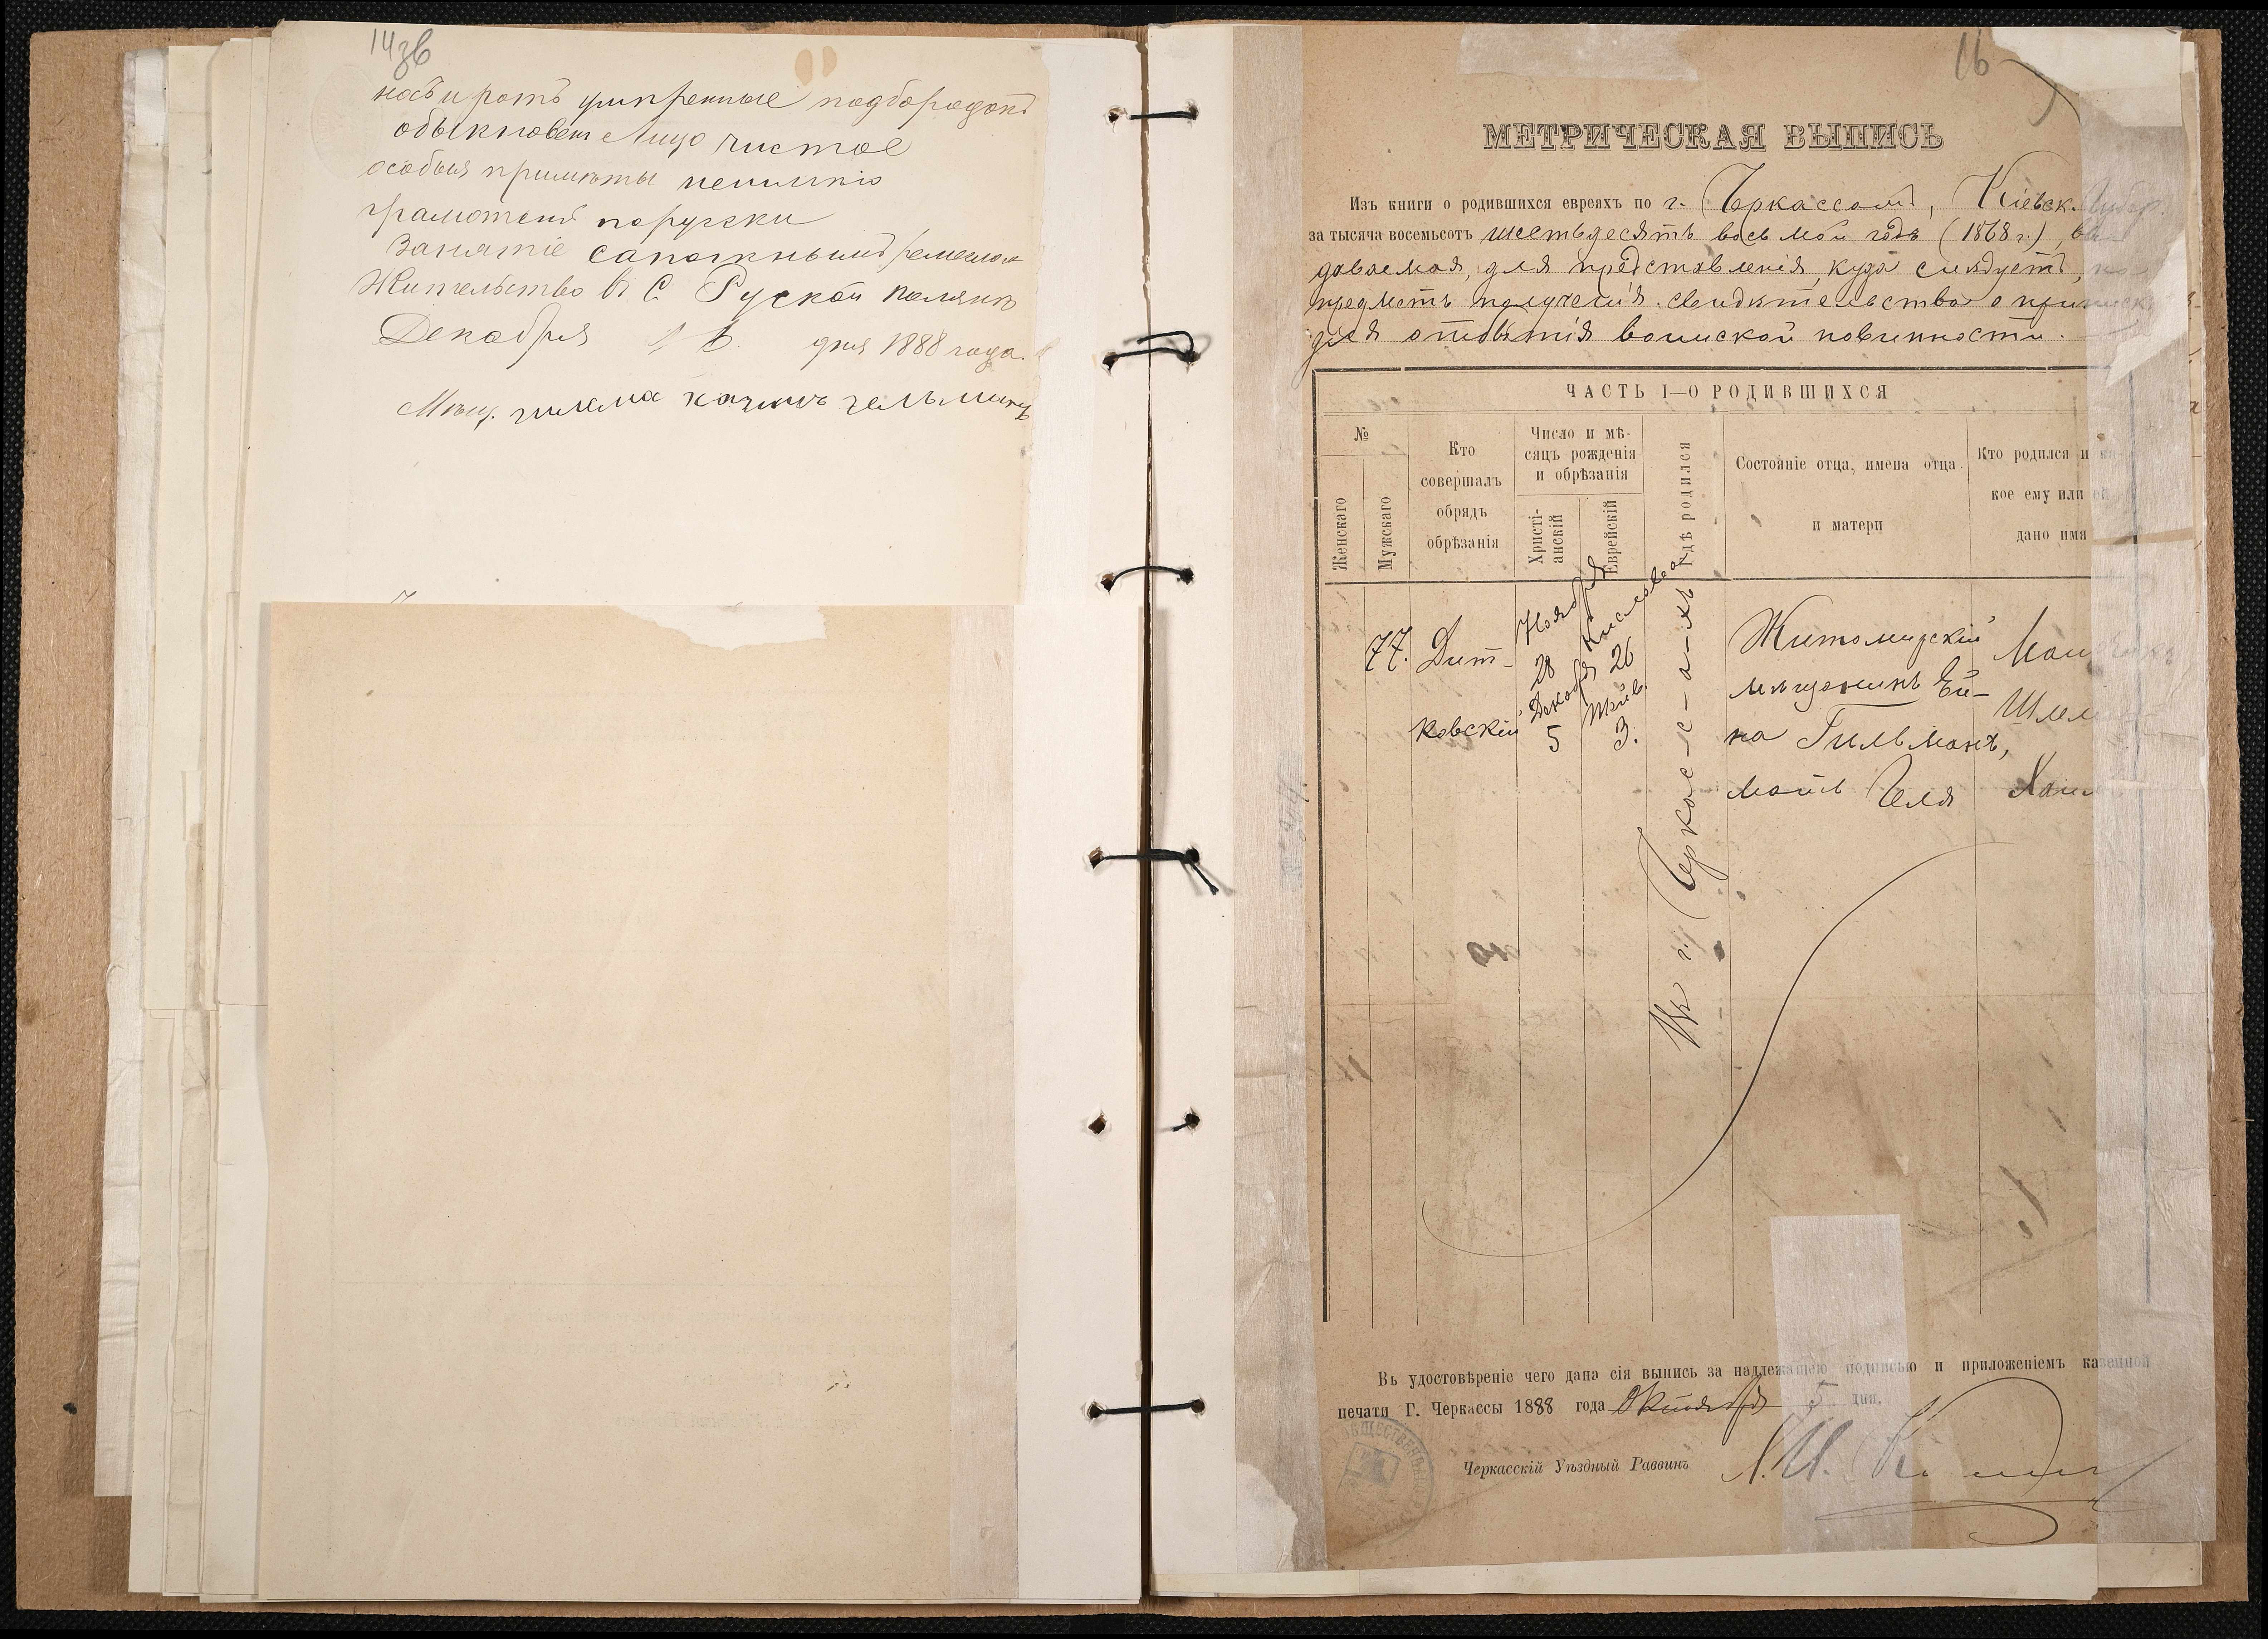 14зв
носъ и ротъ умѣренные подбородокъ
обыкновен Лицо чистое
особыя примѣты неимѣю
грамотенъ поруски
Занятіе сапожнымъ ремесломъ
Жительство въ С. Руской Полянѣ
Декабря 16 дня 1888 года.
Мѣщ.
16
МЕТРИЧЕСКАЯ ВЫПИСЬ
Изъ книги о родившихся евреяхъ по г. Черкассамъ, Кіевск. Губер.
за тысяча восемьсотъ шестьдесятъ восьмой годъ (1868 г.), вы-
даваемая, для представленія, куда слѣдуетъ, на
предметъ полученія свидѣтельства о приписк
для отбытія воинской повинности.
ЧАСТЬ I—О РОДИВШИХСЯ
№
Женскаго
Мужскаго
Кто совершалъ обрядъ обрѣзанія
Число и мѣ-
сяцъ рожденія
и обрѣзанія
Христі-
анскій
Еврейскій
Гдѣ родился
Состояніе отца, имена отца
и матери
Кто родился и ка-
кое ему или ей
дано имя
77.
Дит-
ковскій
Ноября
28
Декабря
5
Кислева
26
Тейв.
3.
Въ г. Черкас-с-а-хъ
Житомирскій
мѣщанинъ Ей-
на Гильманъ,
мать Челя
Мальчикъ
Шлем
Хаим
Въ удостовѣреніе чего дана сія выпись за надлежащею подписью и приложеніемъ казенной
печати Г. Черкассы 1888 года Октября 5 дня.
Черкасскій Уѣздный Раввинъ